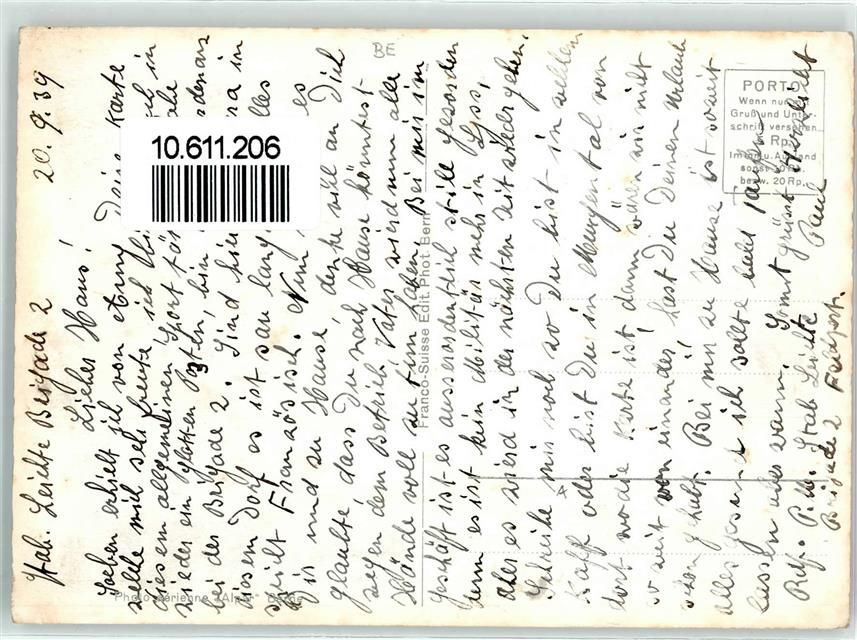 Stab. Leichte Brigade 2 20. 9. 39
Lieber Hans!
Soeben erhielt ich von Anny Deine Karte
welche mich sehr freute ich
diesem allgemeinen Sport
wieder ein glatten Posten, bin
bei der Brigade 2. Sind hier in
diesem Dorf es ist sau lang alles
spricht Französisch. Nun es
bin und zu Hause denke viel an Dich
glaubte, dass Du nach Hause könntest
wegen dem Betrieb Vater wird nun alle
Hände voll zu tun haben. Bei mir im
Geschäft ist es ausserordentlich still geworden
denn es ist kein Militär mehr in Lyss,
aber es wird in der nächsten Zeit wieder gehen.
Schreibe mir noch wo Du bist in welchem
Kaff oder bist Du in Murgental von
dort wo die Karte ist dann wären wir nicht
so weit von einander! Hast Du Deinen Urlaub
schon gehabt. Bei mir zu Hause ist soweit
alles gesund ich sollte bald
aber wann. Somit grüsst herzlichst
Paul
P. Stab Leichte
Brigade 2 Feldpost.
10.611.206
BE
PORTO
Wenn nur
Gruß und Unter-
schrift versehen
Rp.
Im Ausland
sonst
bezw. 20 Rp.
Franco-Suisse Edit. Phot. Bern
Photo aérienne "Alpar" Berne